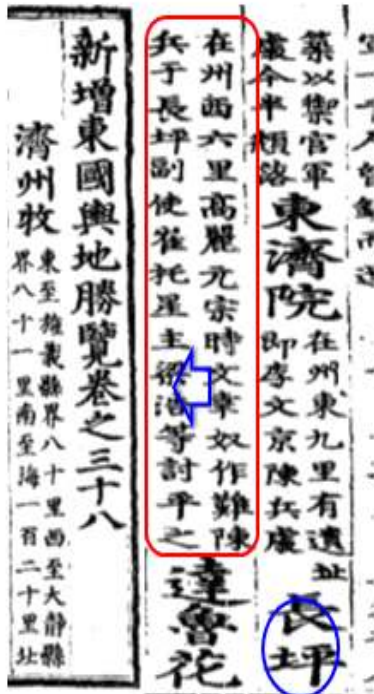 築以禦官軍
處今半頹落
東濟院
在州東九里有遺址
即李文京陳兵處
長坪
在州西六里高麗元宗時文幸奴作難陳
兵于長坪副使崔托星主梁浩等討平之
達魯花
新增東國輿地勝覽卷之三十八
濟州牧
東至旌義縣界八十里西至大靜縣
界八十一里南至海一百二十里北